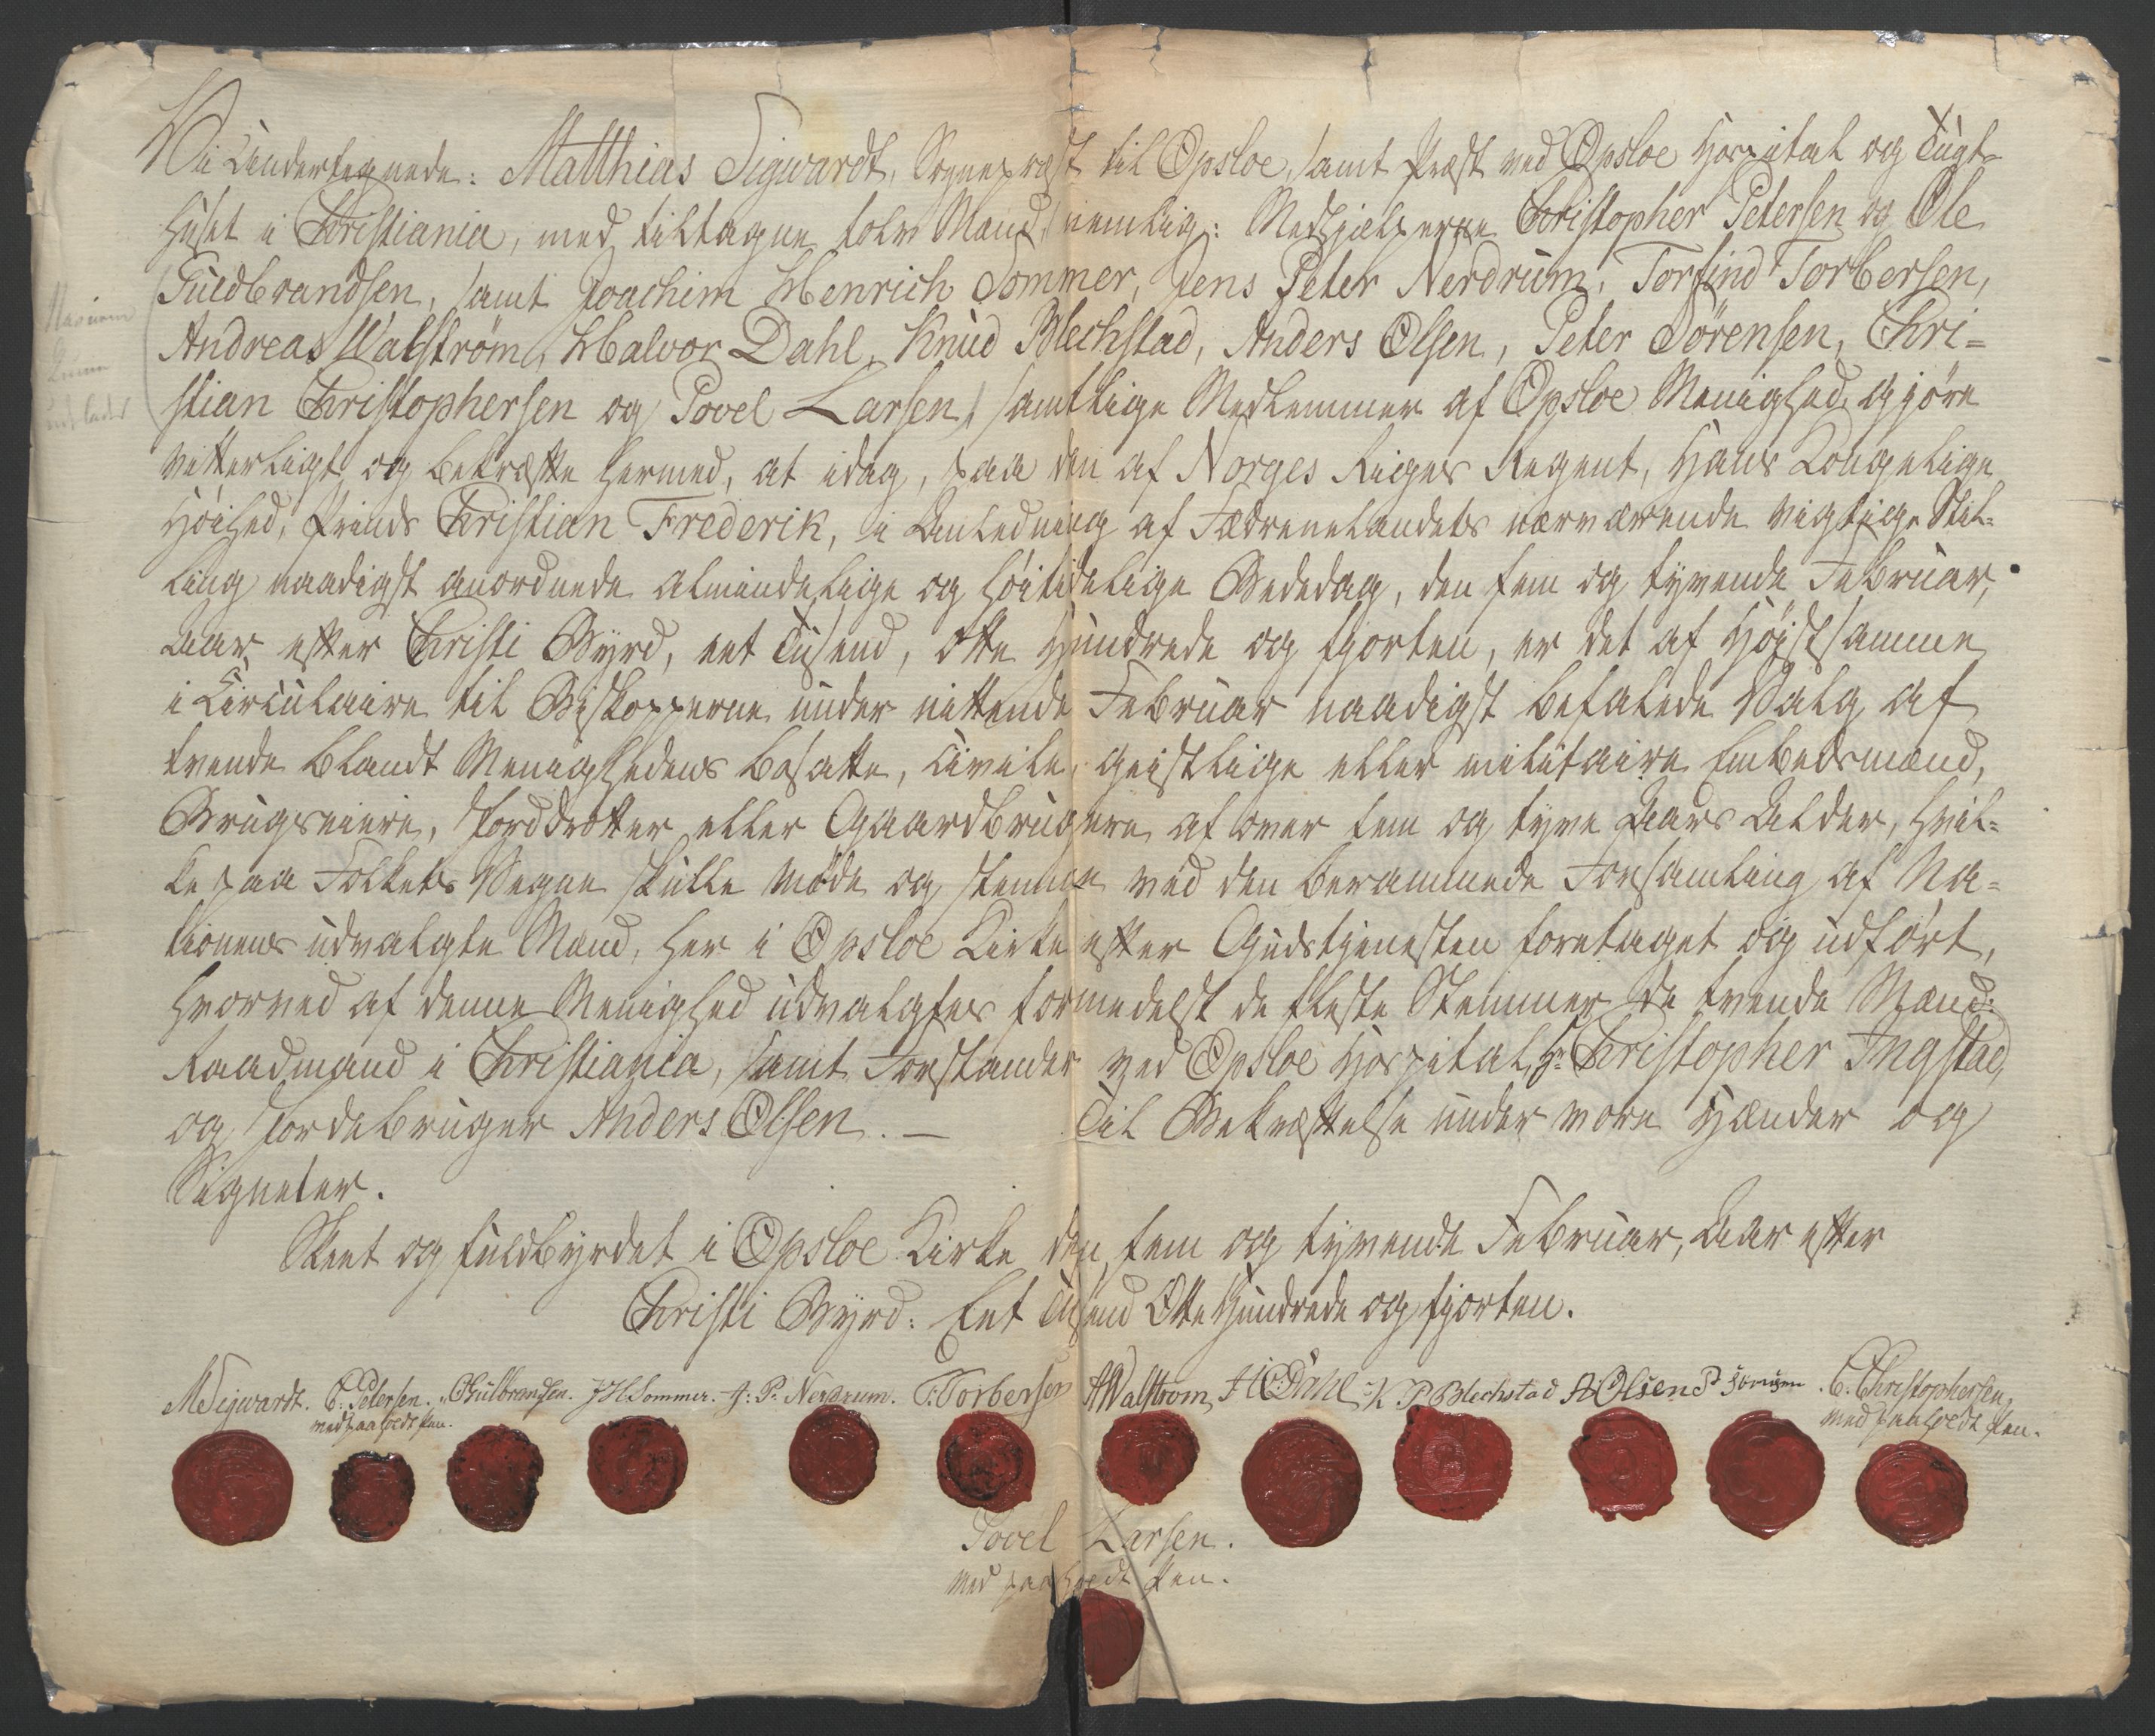 Vi Undertegnede: Matthias Sigwardt, Sognepræst til Opsloe, samt Præst ved Opsloe Hospital og Tugt-
huset i Christiania, med tiltagne tolv Mænd, nemlig: Medhjelperne Christopher Petersen og Ole
Guldbrandsen, samt Joachim Henrich Sommer, Jens Peter Nerdrum, Torfind Torbersen,
Andreas Walstrøm, Halvor Dahl, Knud Blechstad, Anders Olsen, Peter Sörensen, Chri=
stian Christophersen og Povel Larsen, samtlige Medlemmer af Opsloe Menighed, gjöre
vitterligt og bekræfte hermed, at idag, paa den af Norges Riges Regent, Hans Kongelige
Höihed, Prinds Christian Frederik, i Anledning af Fædrenelandets nærværende vigtige Stil=
ling naadigst anordnede almindelige og höitidelige Bededag, den fem og tyvende Februar,
Aar efter Christi Byrd, eet Tusend, Otte Hundrede og fjorten, er det af Höistsamme
i Circulaire til Biskopperne under nittende Februar naadigst befalede Valg af
tvende blandt Menighedens bosatte, civile, geistlige eller militaire Embedsmænd,
Brugseiere, Jorddrotter eller Gaardbrugere af over fem og tyve Aars Alder, hvil=
ke paa Folkets Vegne skulle möde og stemme ved den berammede Forsamling af Na=
tionens udvalgte Mænd, her i Opsloe Kirke efter Gudstjenesten foretaget og udfört,
hvorved af denne Menighed udvalgtes formedelst de fleste Stemmer de tvende Mænd:
Raadmand i Christiania, samt Forstander ved Opsloe Hospital, Hr. Christopher Ingstad,
og Jordebruger Anders Olsen. — Til Bekræftelse under vore Hænder og
Signeter.
Skeet og fuldbyrdet i Opsloe Kirke den fem og tyvende Februar, Aar efter
Christi Byrd: Eet Tusend Otte Hundrede og fjorten.
MSigwardt. C: Petersen. OGulbrandsen. JHSommer. J: P: Nerdrum. T: Torbersen AWalstrom HCDahl K P Blechstad AOlsen P Sörensen C: Christophersen,
med paaholdt Pen. med paaholdt Pen.
Povel Larsen.
med paaholdt Pen.